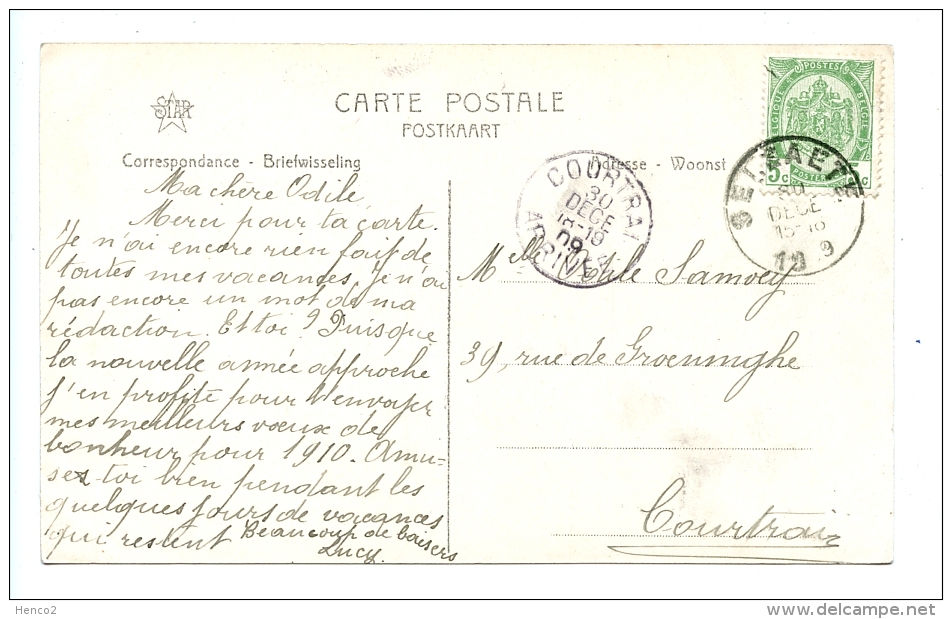 STAR
CARTE POSTALE
POSTKAART
Correspondance - Briefwisseling
Adresse - Woonst
Ma chère Odile,
Merci pour ta carte.
Je n'ai encore rien fait de
mes vacances, je n'ai
pas encore un mot de ma
rédaction. Et toi? Puisque
la nouvelle année approche
j'en profite pour t'envoyer
mes meilleurs vœux de
bonheur pour 1910. Amu-
ses-toi bien pendant les
quelques jours de vacances
qui restent Beaucoup de baisers
Lucy.
POSTES
BELGIQUE BELGIË
5c POSTERIJEN 5c
SELZAETE
30
DECE
15-16
19 9
COURTRAI
30
DECE
18-19
09
ARRIN
Melle Odile Samoey
39, rue de Groeninghe
Courtrai
Henco2
delcampe.net